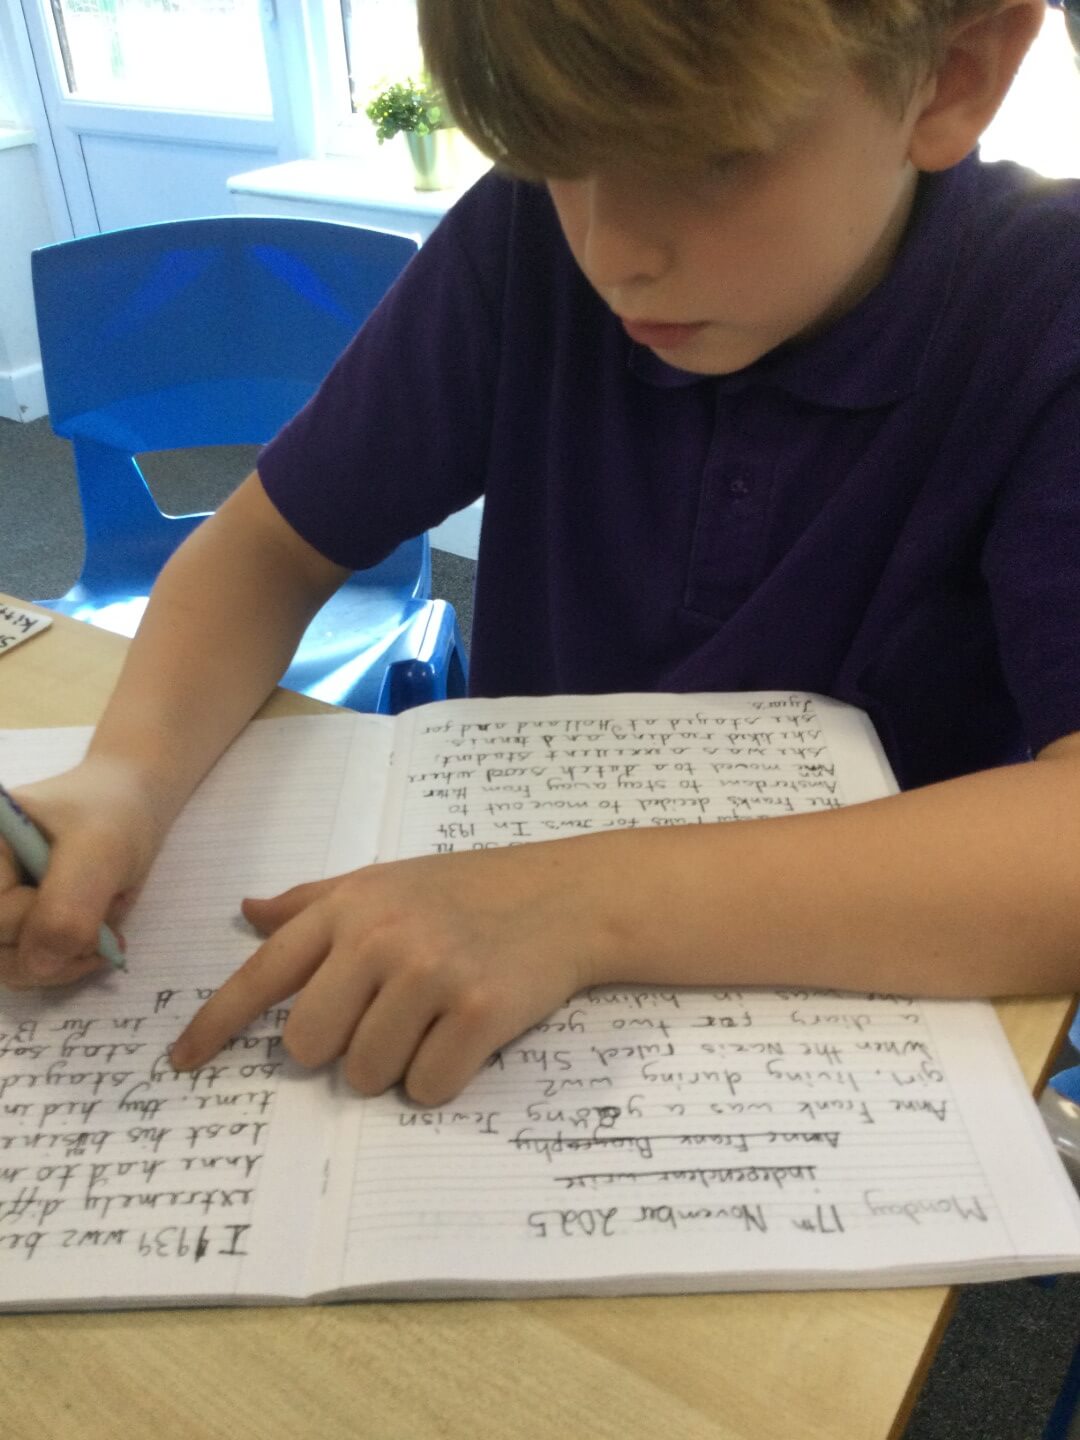 Monday 17th November 2025
Independent write
Anne Frank Biography
Anne Frank was a young Jewish
girl, living during ww2
When the Nazis ruled, She k
a diary for two yea
was in hiding
so he
Rules for Jew's. In 1934
the Franks decided to move out to
Amsterdam to stay away from Hitler
Ann moved to a dutch scool where
she was a execllent student;
she liked reading and tennis.
she stayed at Holland and for
7 years.
I 1939 ww2 be
extremely diffi
Anne had to m
lost his busine
time. they hid in
so they stayed
day stay saf
In her
a